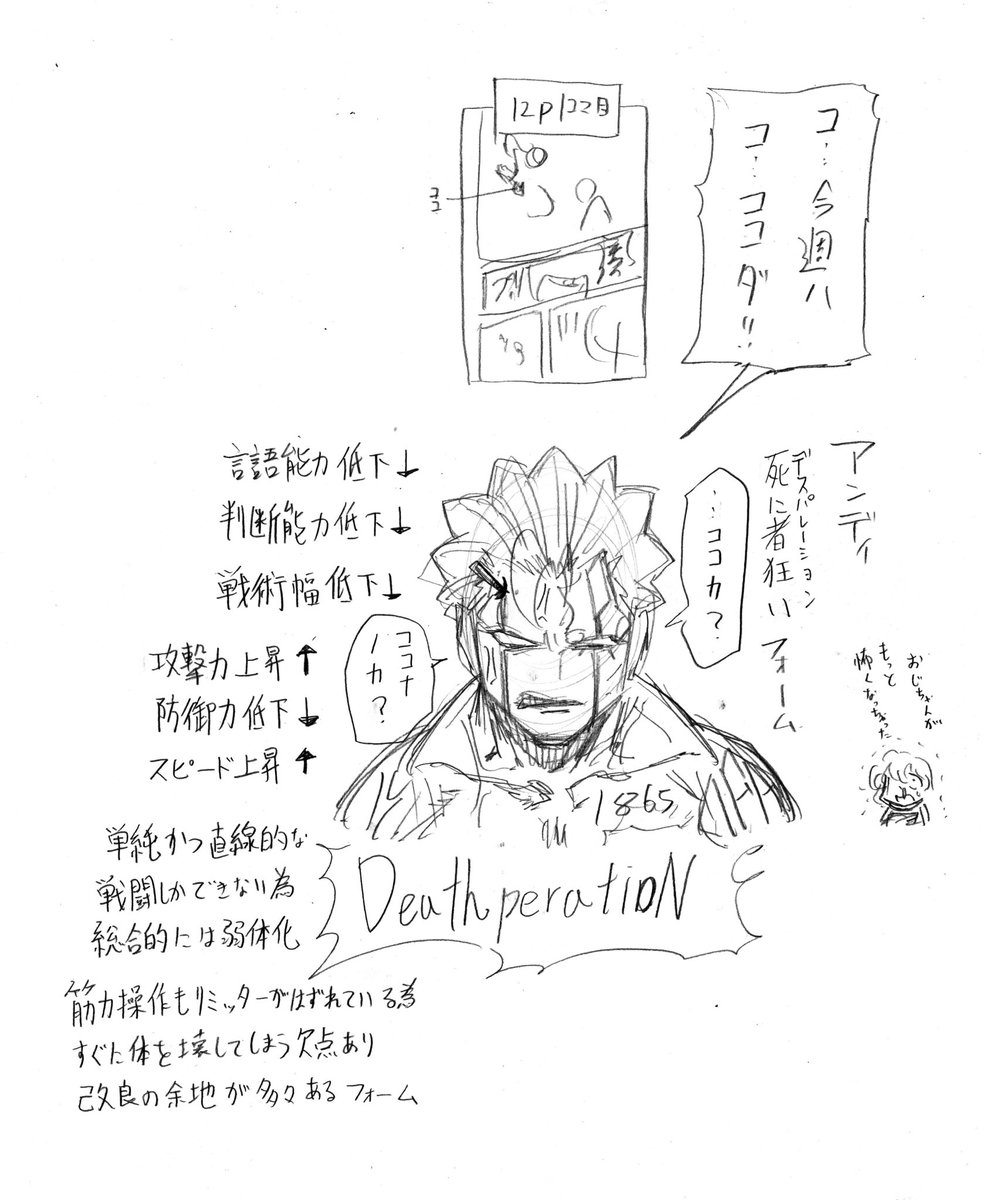 コ…今週ハ
コ…ココダ!!
12P1コマ目
ココ
アンディ
死に者狂い フォーム
デスパレーション
…ココカ?
ココナ
ノカ?
言語能力低下↓
判断能力低下↓
戦術幅低下↓
攻撃力上昇↑
防御力低下↓
スピード上昇↑
おじちゃんが
もっと
怖くなっちゃった
1865
DeathperatioN
単純かつ直線的な
戦闘しかできない為
総合的には弱体化
筋力操作もリミッターがはずれている為
すぐに体を壊してしまう欠点あり
改良の余地が多々あるフォーム